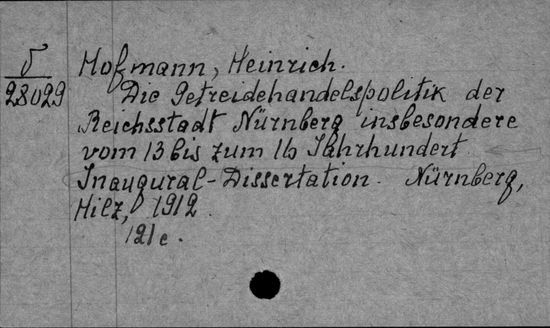 5
28029
Hofmann, Heinrich.
Die Getreidehandelspolitik der
Reichsstadt Nürnberg insbesondere
vom 13 bis zum 16 Jahrhundert.
Inaugural-Dissertation. Nürnberg,
Hilz, 1912.
121 c.